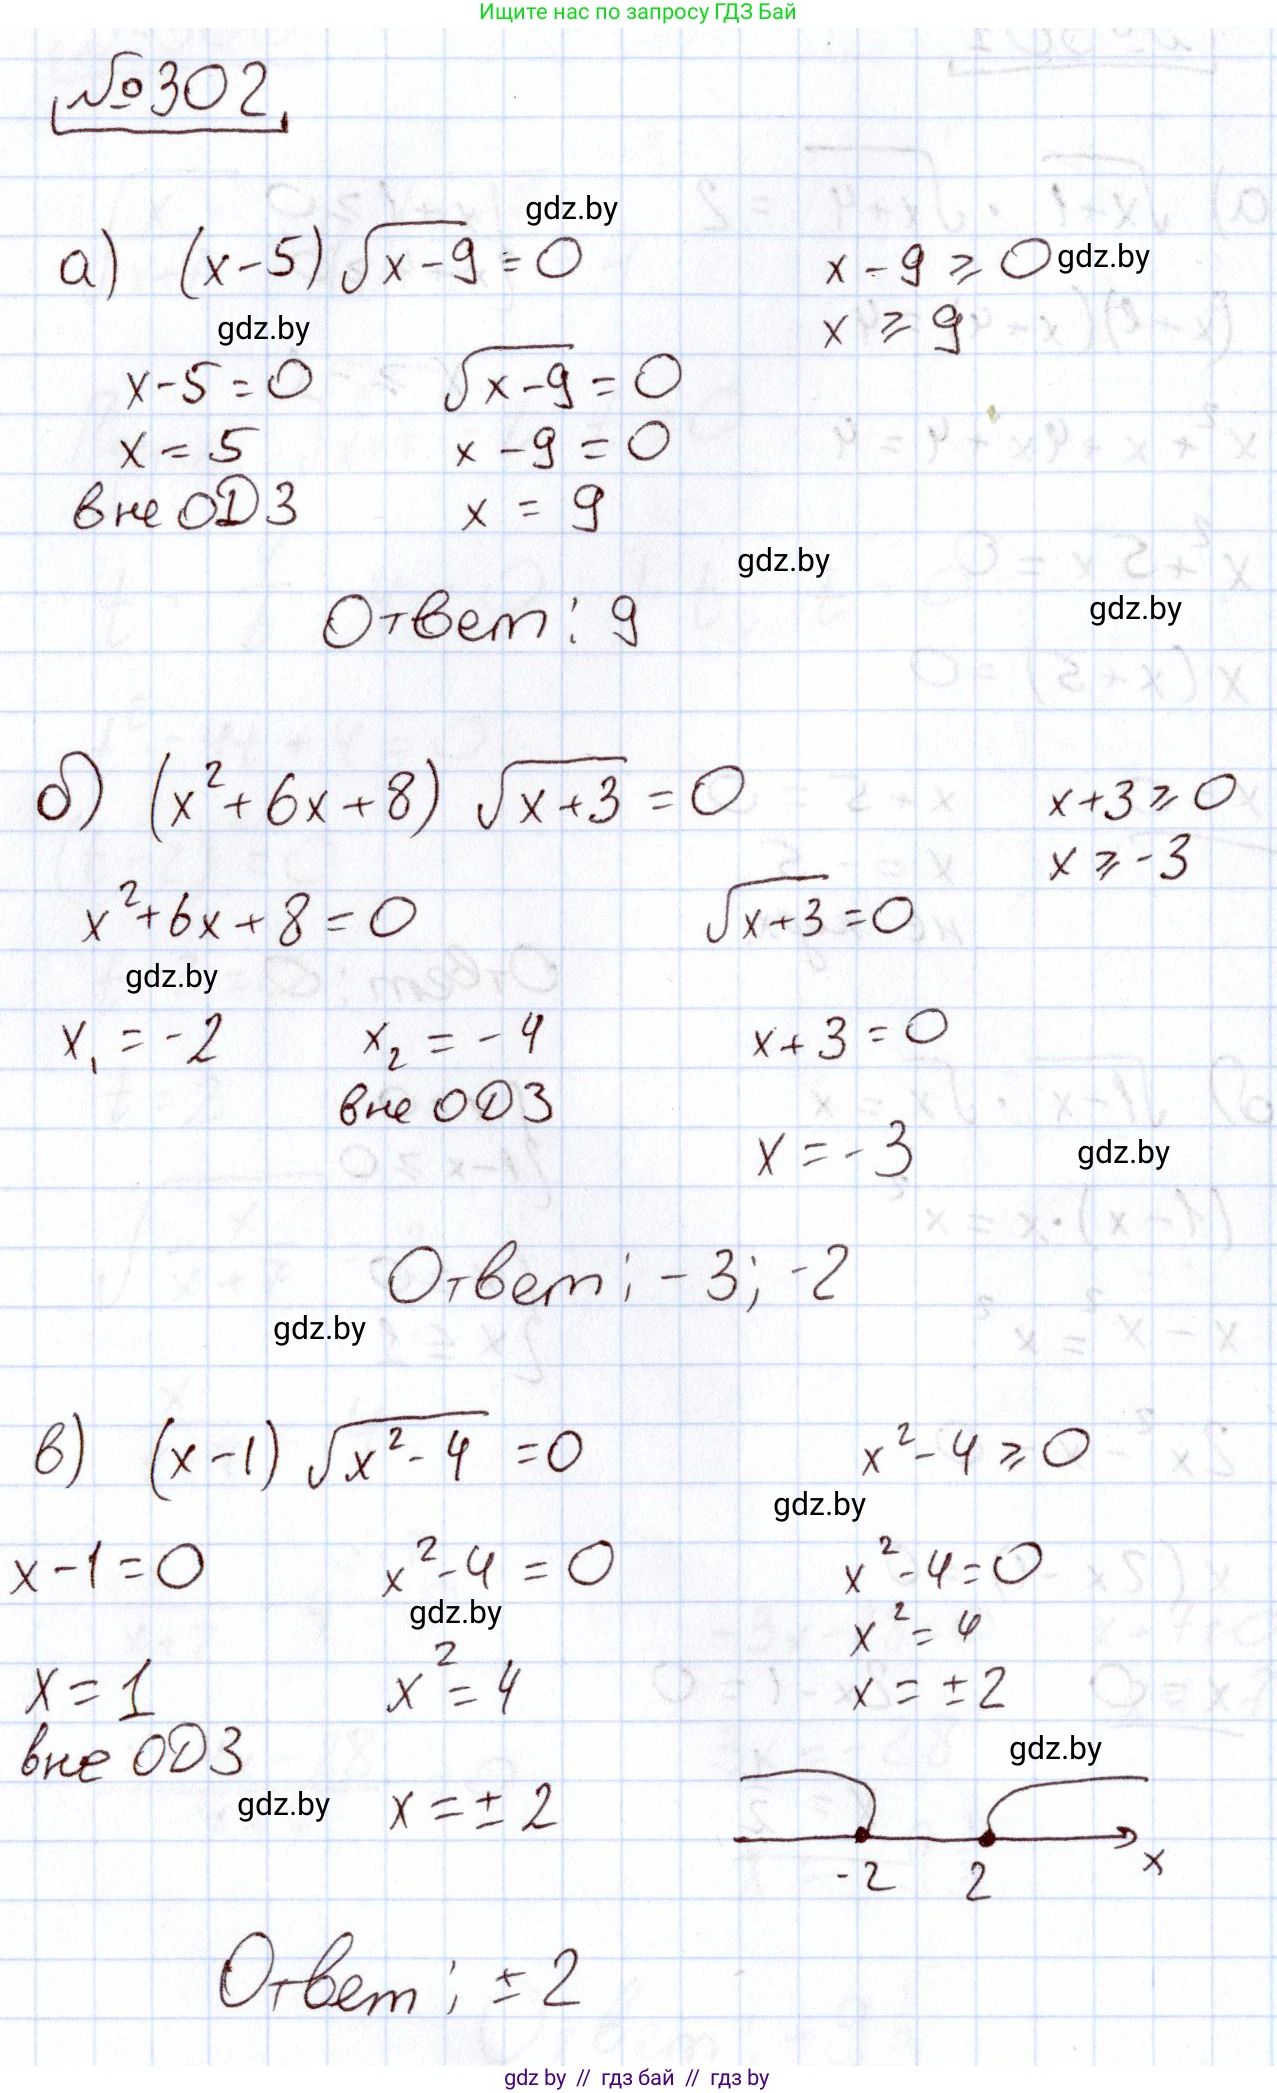 Ищите нас по запросу ГДЗ Бай
№302
gdz.by
а) (x-5)√(x-9) = 0
x-9 ≥ 0 gdz.by
gdz.by
x ≥ 9
x-5=0 √(x-9) = 0
x = 5 x-9 = 0
вне ОДЗ x = 9
gdz.by
Ответ: 9
gdz.by
б) (x²+6x+8) √(x+3) = 0
x+3 ≥ 0
x ≥ -3
x²+6x+8=0 √(x+3) = 0
gdz.by
x₁ = -2 x₂ = -4 x+3 = 0
вне ОДЗ
x = -3 gdz.by
Ответ: -3; -2
gdz.by
в) (x-1) √(x²-4) = 0 x²-4 ≥ 0
gdz.by
x-1=0 x²-4 = 0 x²-4=0
gdz.by
x²= 4
x = 1 x² = 4 x = ±2
вне ОДЗ
gdz.by
gdz.by x = ± 2
-2 2 x
Ответ: ± 2
gdz.by // гдз бай // гдз by